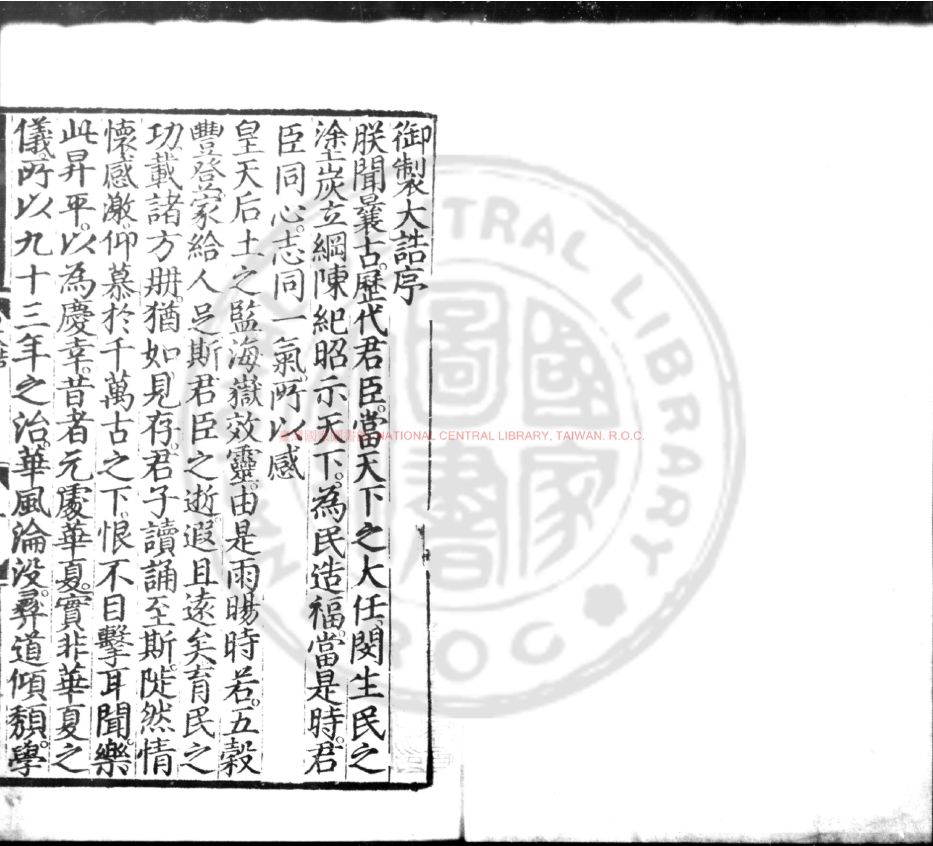 御製大誥序
朕聞曩古歷代君臣。當天下之大任、閔生民之
塗炭立綱陳紀昭示天下。為民造福。當是時。君
臣同心。志同一氣。所以感
皇天后土之監海嶽效靈。由是雨暘時若。五穀
豐登。家給人足斯君臣之逝遐且遠矣。育民之
功。載諸方冊。猶如見存。君子讀誦至斯。陡然情
懷感激。仰慕於千萬古之下。恨不目擊耳聞。樂
此昇平。以為慶幸。昔者元處華夏。實非華夏之
儀。所以九十三年之治。華風淪沒。彛道傾頹。學
NATIONAL CENTRAL LIBRARY, TAIWAN. R.O.C.
CENTRAL LIBRARY
ROC
國家圖書